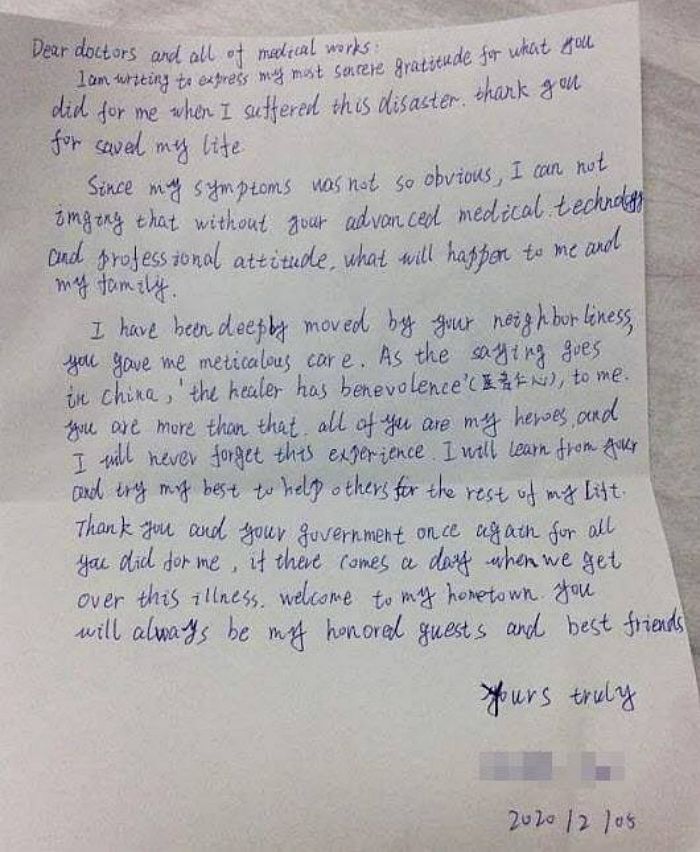 Dear doctors and all of medical works:
I am writing to express my most sincere gratitude for what you
did for me when I suffered this disaster. thank you
for saved my life
Since my symptoms was not so obvious, I can not
imging that without your advanced medical technology
and professional attitude, what will happen to me and
my family.
I have been deeply moved by your neighborliness,
you gave me meticalous care. As the saying goes
in China, 'the healer has benevolence'(医者仁心), to me.
you are more than that. all of you are my heroes, and
I will never forget this experience. I will learn from your
and try my best to help others for the rest of my life.
Thank you and your government once again for all
you did for me, if there comes a day when we get
over this illness. welcome to my hometown. you
will always be my honored guests and best friends
yours truly
2020/2/05